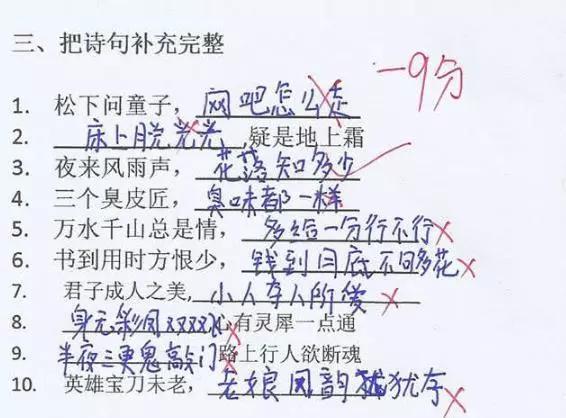 三、把诗句补充完整
-9分
1. 松下问童子，网吧怎么走
2. 床上脱光光,疑是地上霜
3. 夜来风雨声，花落知多少
4. 三个臭皮匠，臭味都一样
5. 万水千山总是情，多给一分行不行
6. 书到用时方恨少，钱到月底不够多花
7. 君子成人之美,小人夺人所爱
8. 身无彩凤双双飞心有灵犀一点通
9. 半夜三更鬼敲门路上行人欲断魂
10. 英雄宝刀未老，老娘风韵犹存